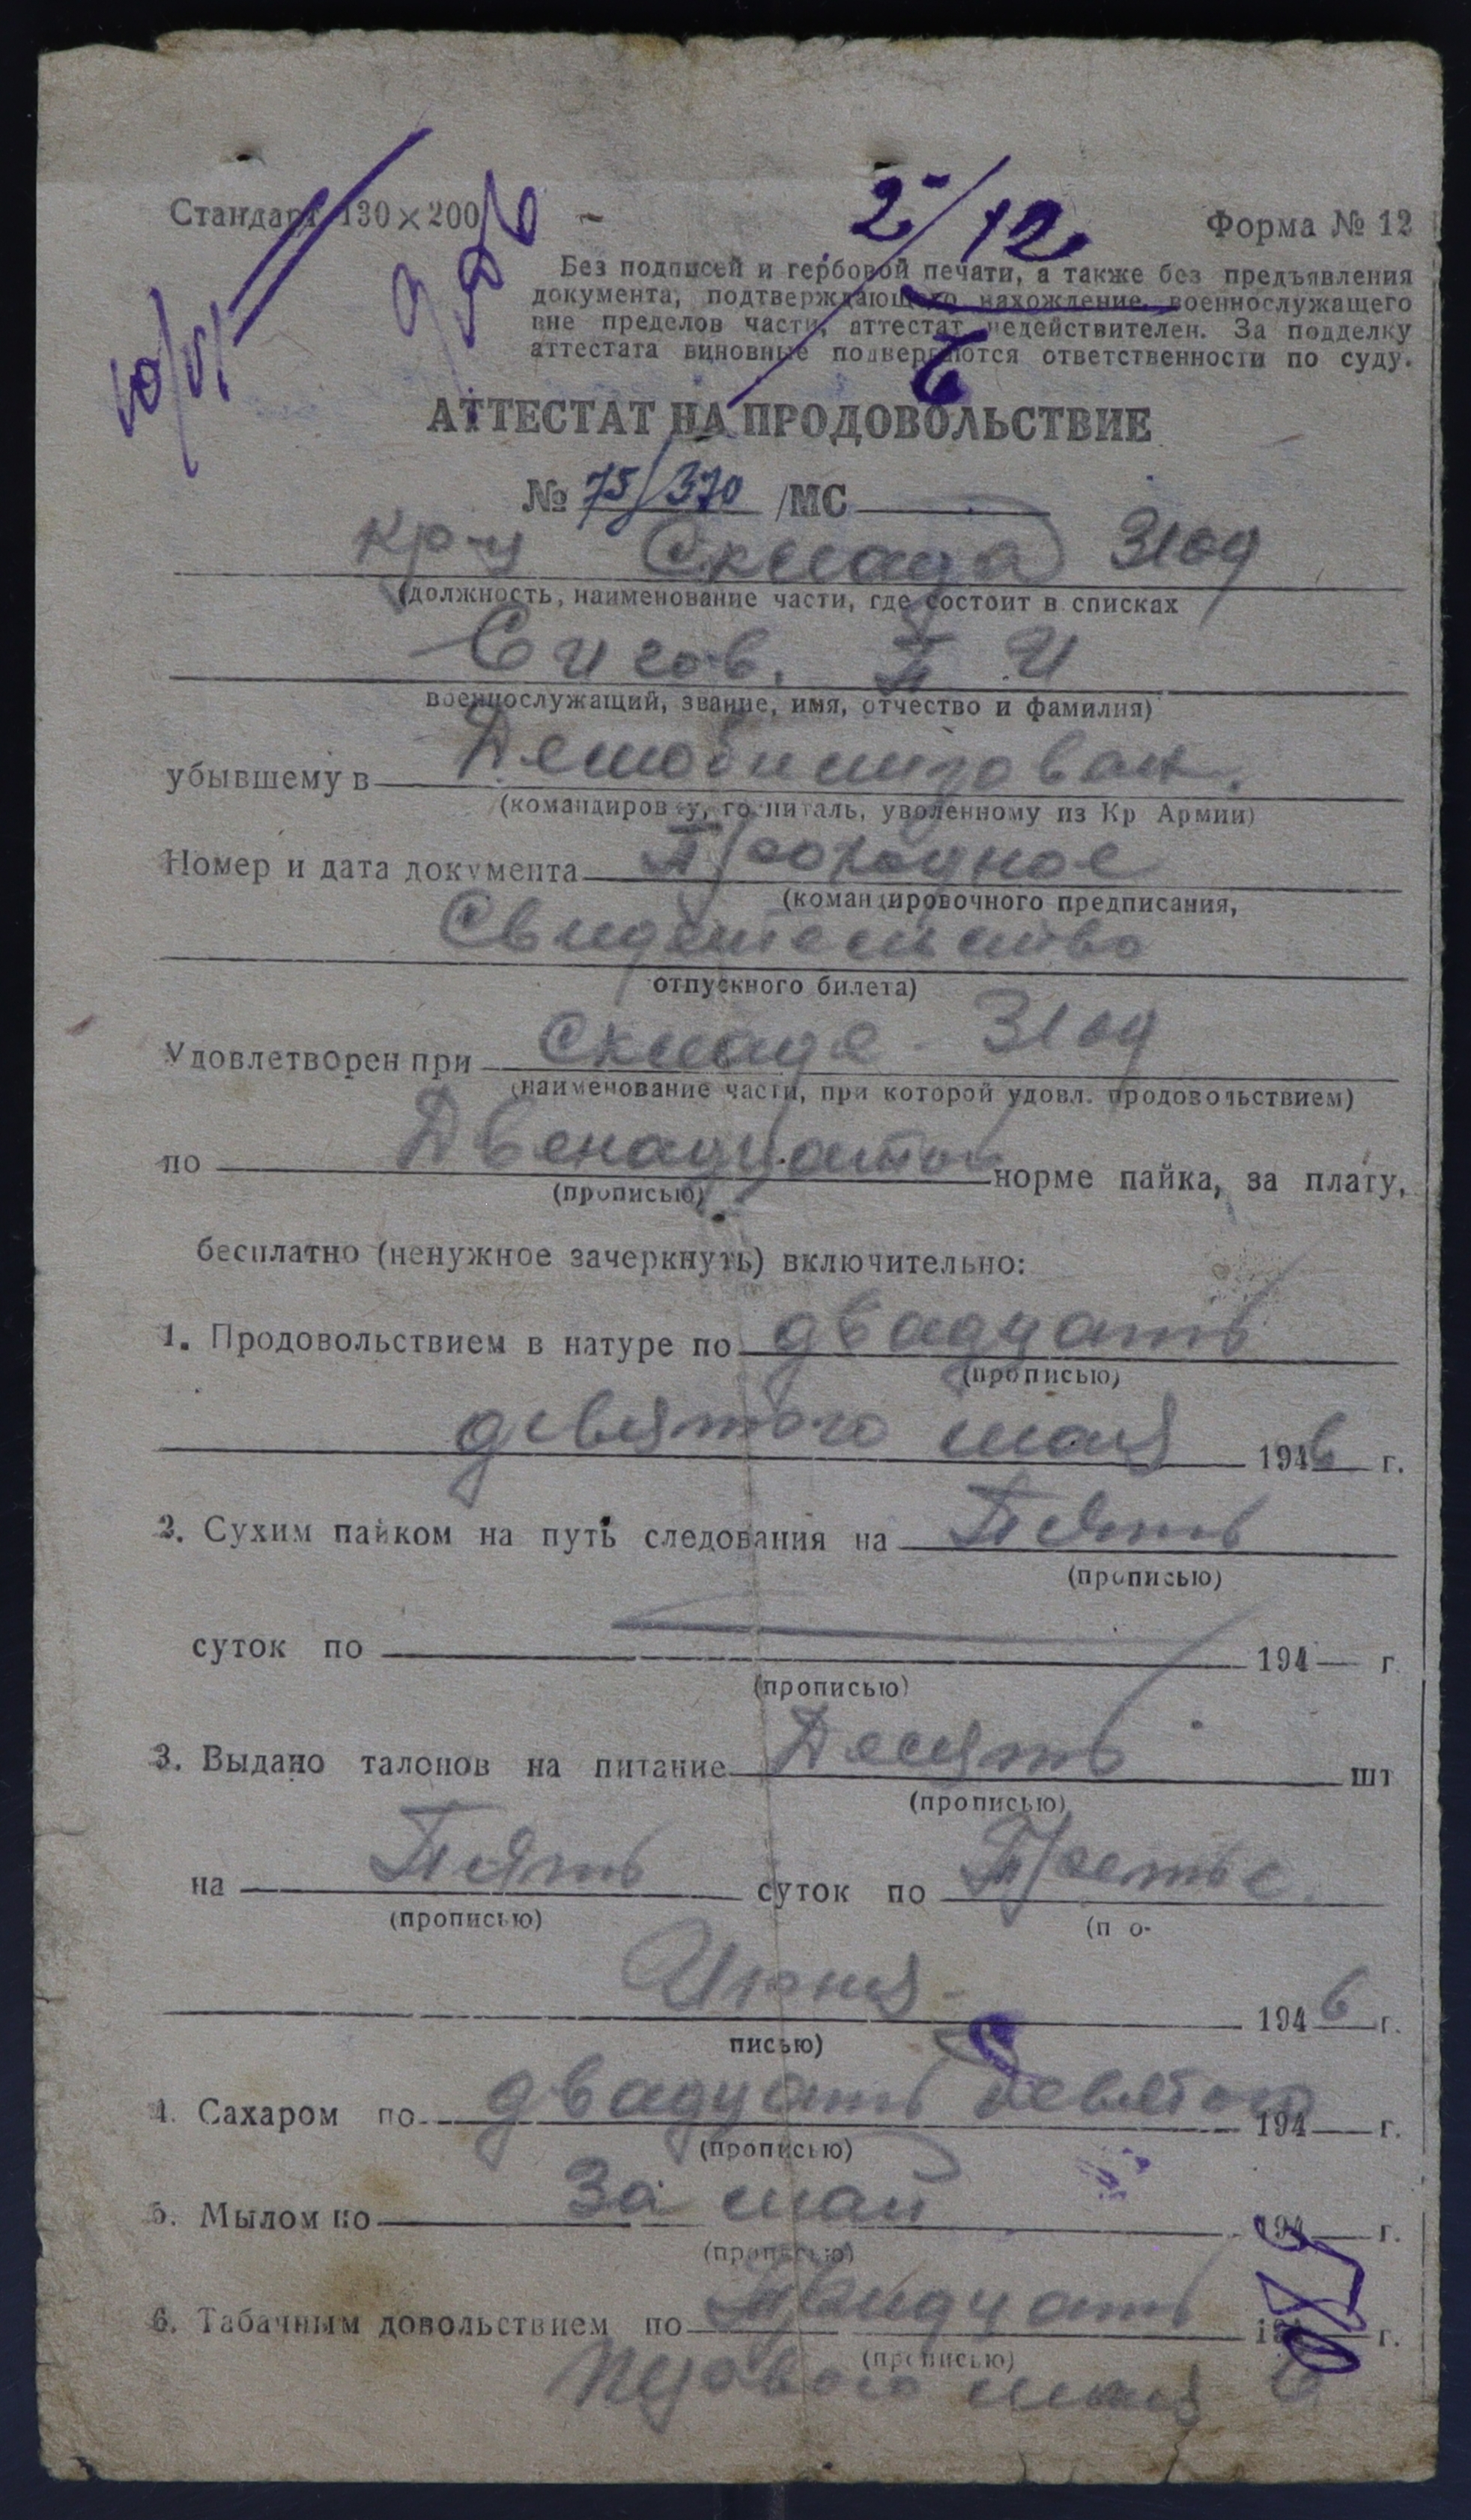 Стандарт 130×200
Форма № 12
2/12
Без подписей и гербовой печати, а также без предъявления
документа, подтверждающего нахождение военнослужащего
вне пределов части, аттестат недействителен. За подделку
аттестата виновные подвергаются ответственности по суду.
АТТЕСТАТ НА ПРОДОВОЛЬСТВИЕ
№ 75/370 /МС
кр-ц Склада 3169
(должность, наименование части, где состоит в списках
Сигов. П И
военнослужащий, звание, имя, отчество и фамилия)
убывшему в Демобилизован.
(командировку, госпиталь, уволенному из Кр Армии)
Номер и дата документа Проходное
(командировочного предписания,
Свидетельство
отпускного билета)
Удовлетворен при Складе 3169
(наименование части, при которой удовл. продовольствием)
по Двенадцатой норме пайка, за плату,
(прописью)
бесплатно (ненужное зачеркнуть) включительно:
1. Продовольствием в натуре по двадцать
(прописью)
девятого мая 1946 г.
2. Сухим пайком на путь следования на Пять
(прописью)
суток по 194 г
(прописью)
3. Выдано талонов на питание Десять шт
(прописью)
на Пять суток по Третье
(прописью) (п о-
Июня 1946 г.
писью)
4. Сахаром по двадцать девятого 194 г.
(прописью)
5. Мылом по За май 194 г.
(прописью)
6. Табачным довольствием по Тридцать г.
(прописью)
первого мая 6